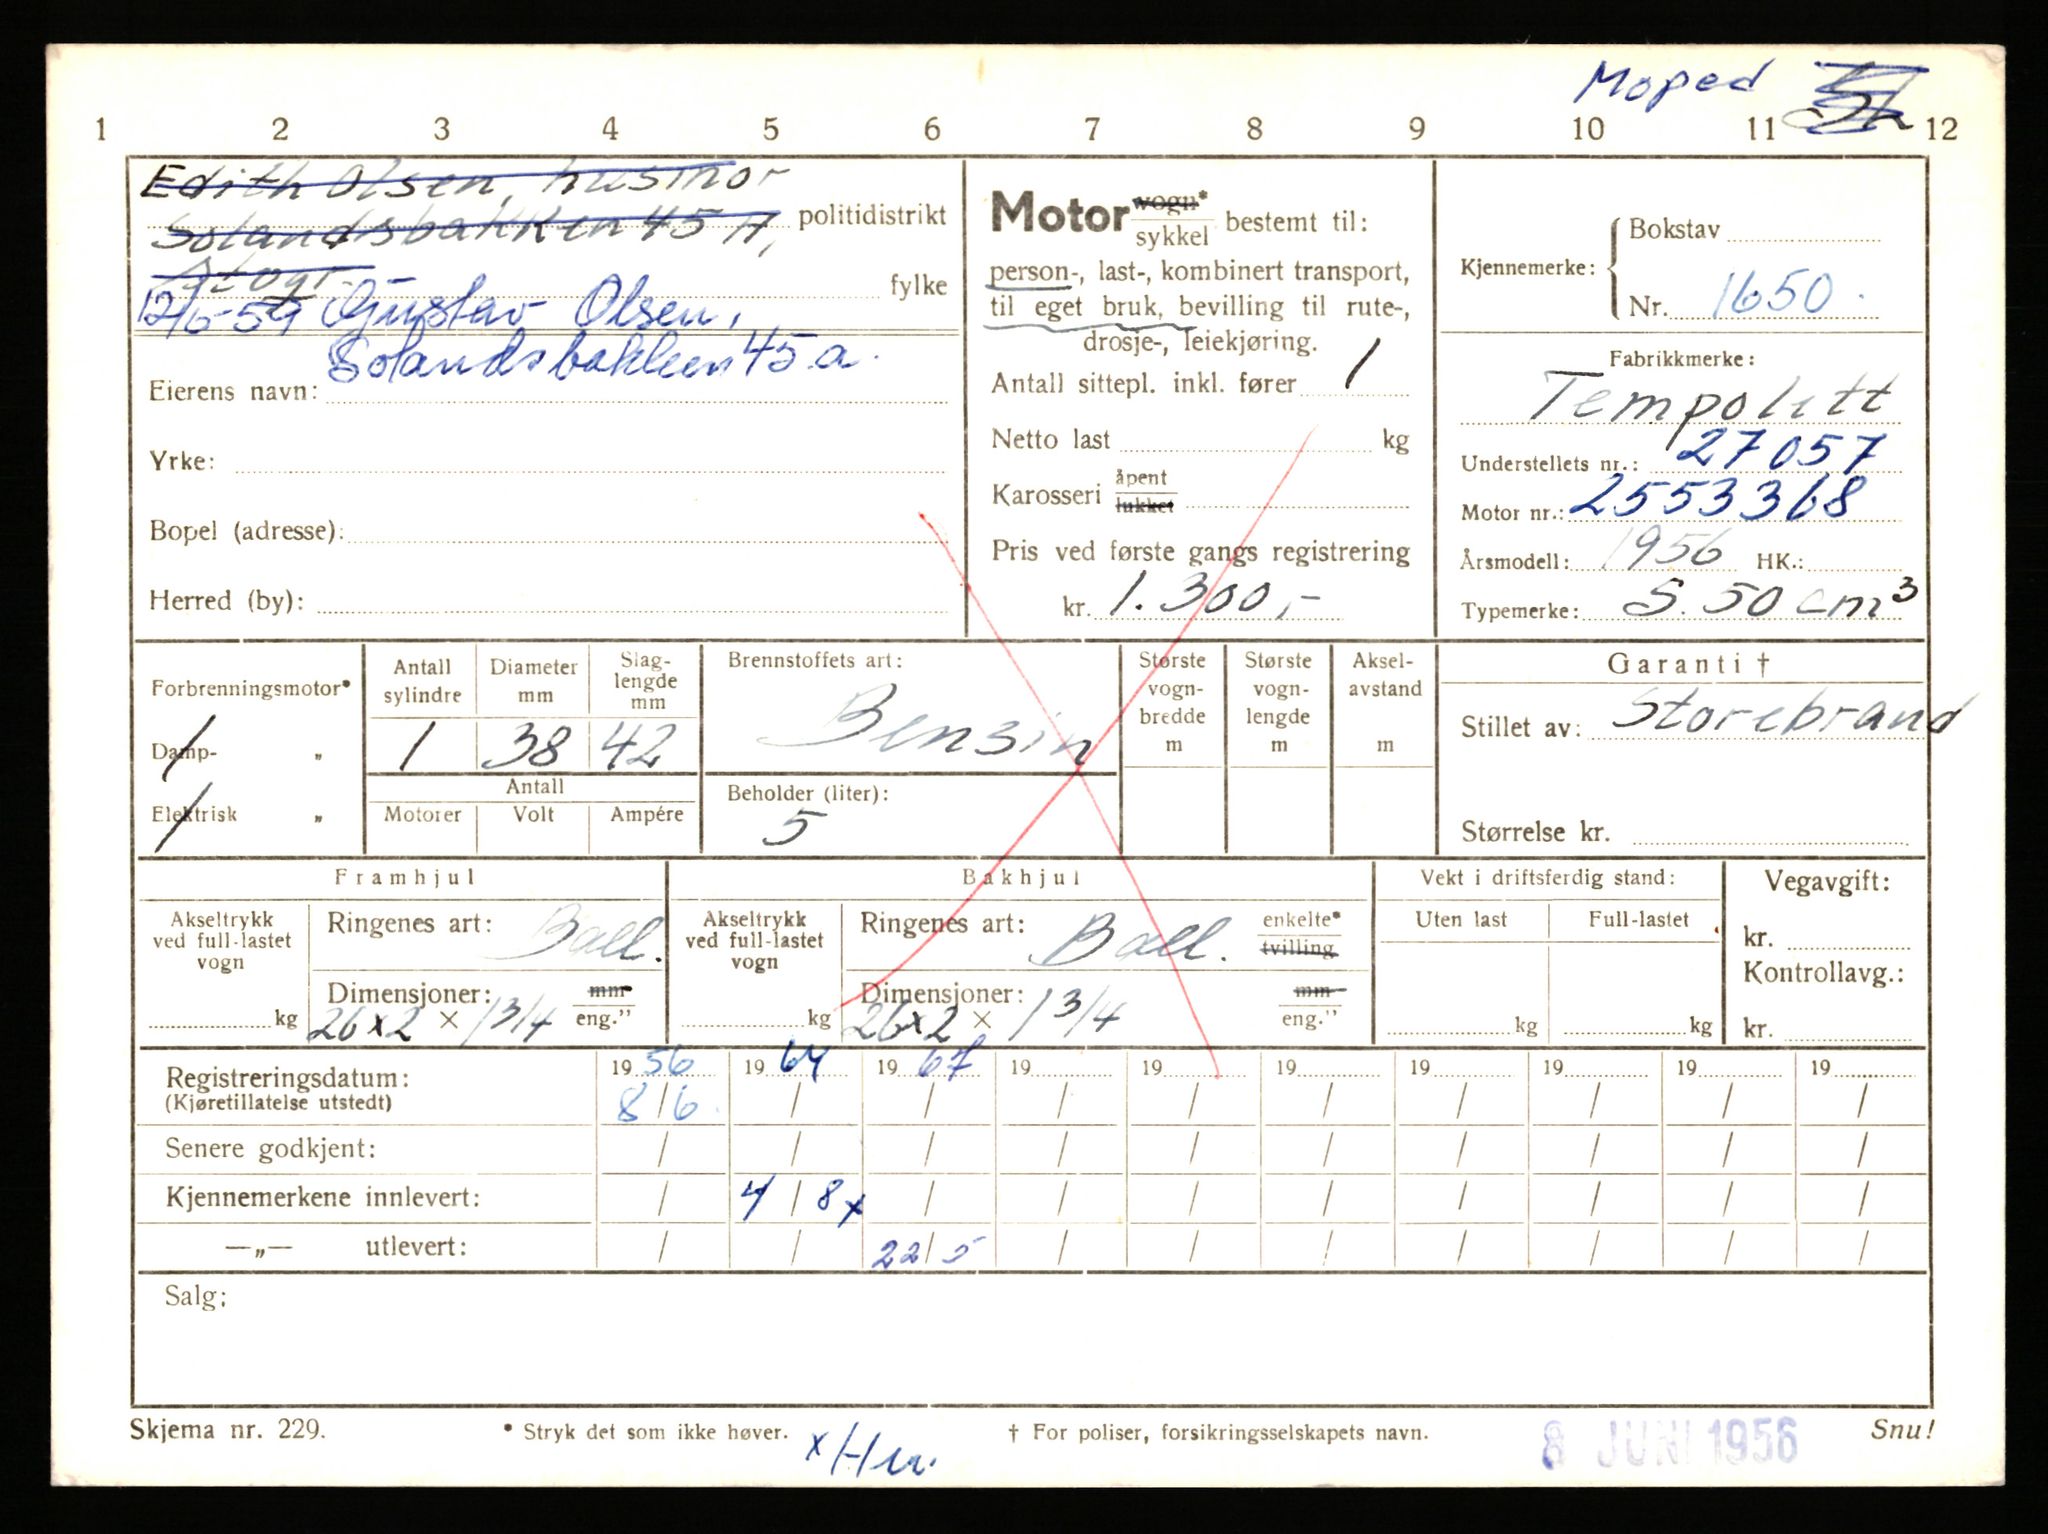 Moped
1 2 3 4 5 6 7 8 9 10 11 12
Edith Olsen, husmor
Solandsbakken 45 A, politidistrikt
fylke
12/5-59 Gustav Olsen,
Solandsbakken 45 a.
Eierens navn:
Yrke:
Bopel (adresse):
Herred (by):
Motor vogn* sykkel bestemt til:
person-, last-, kombinert transport,
til eget bruk, bevilling til rute-,
drosje-, leiekjøring.
Antall sittepl. inkl. fører 1
Netto last kg
Karosseri åpent lukket
Pris ved første gangs registrering
kr. 1.300,-
Kjennemerke: Bokstav
Nr. 1650.
Fabrikkmerke:
Tempolett
Understellets nr.: 27057
Motor nr.: 2553368
Årsmodell: 1956 HK.:
Typemerke: S. 50 cm³
Forbrenningsmotor*
Damp- „
Elektrisk „
Antall sylindre
1
Diameter mm
38
Slag-lengde mm
42
Antall
Motorer Volt Ampére
Brennstoffets art:
Bensin
Beholder (liter):
5
Største vogn-bredde m
Største vogn-lengde m
Aksel-avstand m
Garanti †
Stillet av: Storebrand
Størrelse kr.
Framhjul
Akseltrykk ved full-lastet vogn
kg
Ringenes art: Ball.
Dimensjoner: mm
26x2 × 1 3/4 eng.”
Bakhjul
Akseltrykk ved full-lastet vogn
kg
Ringenes art: Ball. enkelte* tvilling
Dimensjoner: mm
26x2 × 1 3/4 eng.”
Vekt i driftsferdig stand:
Uten last Full-lastet
kg kg
Vegavgift:
kr.
Kontrollavg.:
kr.
Registreringsdatum: 19 56 19 64 19 67 19 19 19 19 19 19 19
(Kjøretillatelse utstedt) 8/6. / / / / / / / / /
Senere godkjent: / / / / / / / / / /
Kjennemerkene innlevert: / 4/8x / / / / / / / /
—„— utlevert: / / 22/5 / / / / / / /
Salg:
Skjema nr. 229. * Stryk det som ikke høver. † For poliser, forsikringsselskapets navn. Snu!
8 JUNI 1956